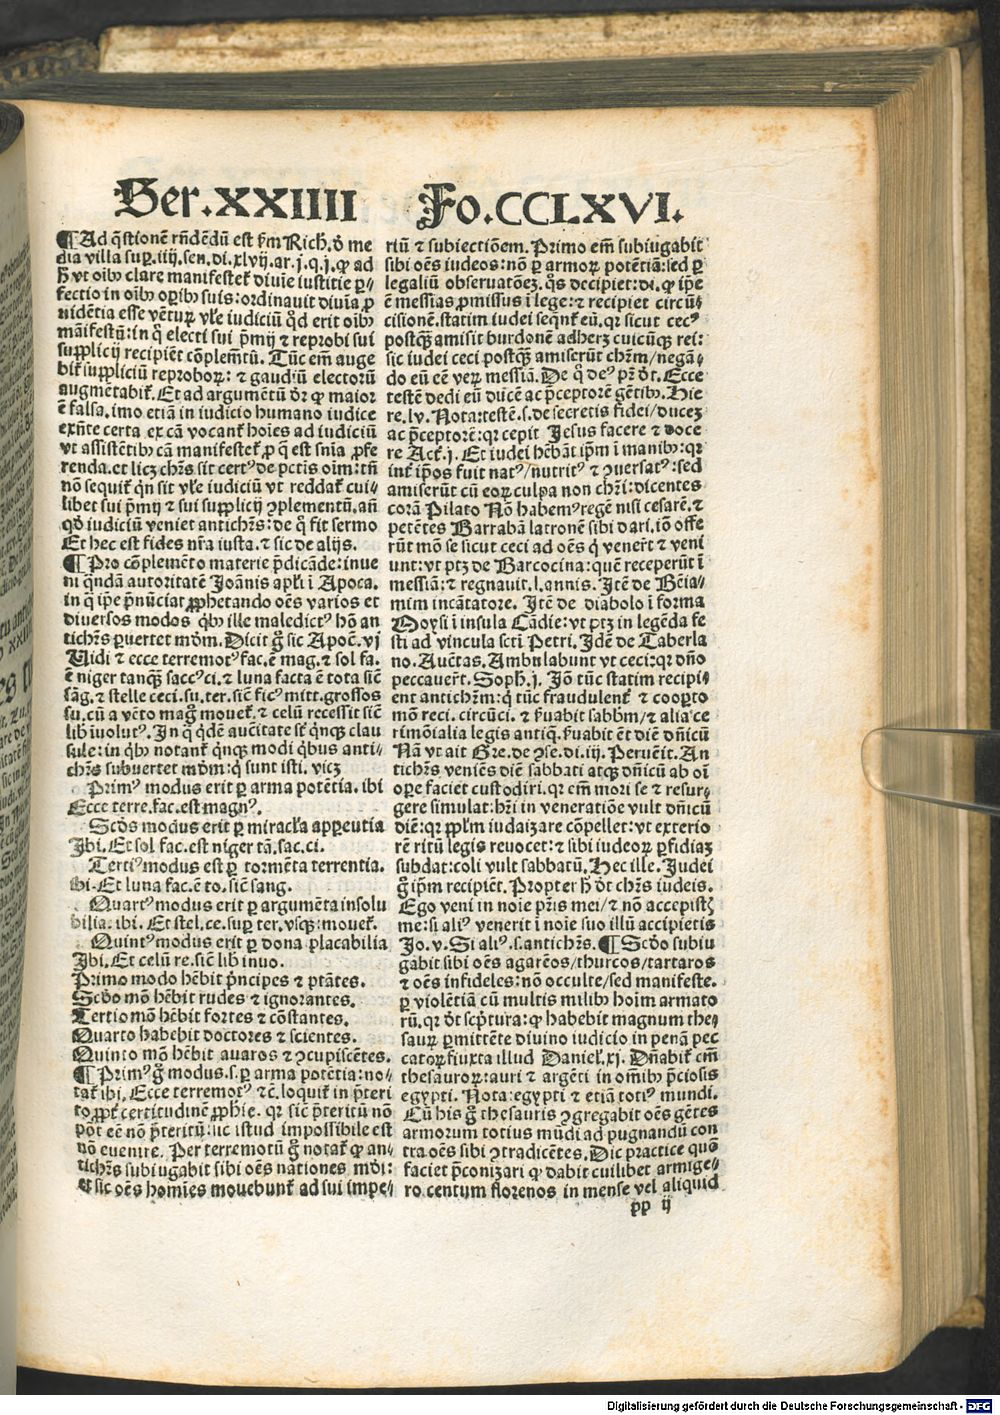 Ser.XXIIII
Fo.CCLXVI.
¶Ad q̄stionē rn̄dēdū est ẜm Rich̄. ď me
dia villa suꝑ. iiij. sen. di. xlvij. ar. j. q. j. ꝙ ad
h̄ vt oībꝰ clare manifestet᷑ diuīe iustitie ꝑ⸗
fectio in oībꝰ oꝑibꝰ suis: ordinauit diuīa ꝓ
uidētia esse vētuꝝ vl̄e iudiciū q̄d erit oībꝰ
māifestū: in q̄ electi sui p̄mij ⁊ reprobi sui
supplicij recipiēt cōplemētū. Tūc em̄ auge
bit᷑ suppliciū reproboꝝ: ⁊ gaudiū electorū
augmētabit᷑. Et ad argumētū ďr ꝙ maior
ē falsa. imo etiā in iudicio humano iudice
exn̄te certa ex cā vocant᷑ hoīes ad iudiciū
vt assistētibꝰ cā manifestet᷑ ꝓ q̄ est sn̄ia ꝓfe
renda. et licꝫ chr̄s sit certꝰ de pctīs oīm: tn̄
nō sequit᷑ qn̄ sit vl̄e iudiciū vt reddat᷑ cui⸗
libet sui p̄mij ⁊ sui supplicij ꝯplementū. an̄
qď iudiciū veniet antichr̄s: de q̄ fit sermo
Et hec est fides nr̄a iusta. ⁊ sic de alijs.
¶Pro cōplemēto materie p̄dicāde: inue
ni q̄ndā autoritatē Joānis apl̄i ī Apoca.
in q̄ ip̄e p̄nūciat ꝓphetando oēs varios et
diuersos modos qͥbꝰ ille maledictꝰ hō an
tichr̄s ꝑuertet mōm. Dicit g̊ sic Apoc̄. vj
Uidi ⁊ ecce terremotꝰ fac. ē mag. ⁊ sol fa.
ē niger tanqꝫ saccꝰ ci. ⁊ luna facta ē tota sic̄
sāg. ⁊ stelle ceci. su. ter. sic̄ ficꝰ mitt. grossos
su. cū a vēto mag̊ mouet᷑. ⁊ celū recessit sic̄
lib̄ īuolutꝰ. In q̄ qͥdē auc̄itate st̄ qͥnqꝫ clau
sule: in qͥbꝰ notant᷑ qͥnqꝫ modi qͥbus anti⸗
chr̄s subuertet mōm: q̄ sunt isti. vicꝫ
Primꝰ modus erit ꝑ arma potētia. ibi
Ecce terre. fac. est magnꝰ.
Scďs modus erit ꝑ miracl̄a apparentia
Ibi. Et sol fac. est niger tā. sac. ci.
Tertiꝰ modus est ꝑ tormēta terrentia.
Ibi. Et luna fac. ē to. sic̄ sang.
Quartꝰ modus erit ꝑ argumēta insolu
bilia. ibi. Et stel. ce. suꝑ ter. vsqꝫ: mouet᷑.
Quintꝰ modus erit ꝑ dona placabilia
Ibi. Et celū re. sic̄ lib̄ inuo.
Primo modo hēbit p̄ncipes ⁊ ptātes.
Scďo mō hēbit rudes ⁊ ignorantes.
Tertio mō hēbit fortes ⁊ cōstantes.
Quarto habebit doctores ⁊ scientes.
Quinto mō hēbit auaros ⁊ ꝯcupiscētes.
¶Primꝰ g̊ modus. s. ꝑ arma potētia: no⸗
tat᷑ ibi. Ecce terremotꝰ ⁊c̄. loquit᷑ in p̄teri
to ꝓpt᷑ certitudinē ꝓphīe. qꝛ sic̄ p̄teritū nō
pōt eē nō p̄teritū: sic istud impossibile est
nō euenire. Per terremotū g̊ notat᷑ ꝙ an⸗
tichr̄s subiugabit sibi oēs nationes mōi:
et sic oēs homīes mouebunt᷑ ad sui impe⸗
riū ⁊ subiectiōem. Primo em̄ subiugabit
sibi oēs iudeos: nō ꝑ armoꝝ potētiā: sed ꝑ
legaliū obseruatōeꝫ. qͦs decipiet: di. ꝙ ip̄e
ē messias ꝓmissus ī lege: ⁊ recipiet circū⸗
cisionē. statim iudei seqͣnt᷑ eū. qꝛ sicut cecꝰ
postqꝫ amisit burdonē adherꝫ cuicūqꝫ rei:
sic iudei ceci postqꝫ amiserūt chr̄m/negā⸗
do eū eē veꝝ messiā. De q̄ deꝰ pr̄ ďt. Ecce
testē dedi eū ducē ac p̄ceptorē gētibꝰ. Hie
re. lv. Nota: testē. s. de secretis fidei/duceꝫ
ac p̄ceptorē: qꝛ cepit Jesus facere ⁊ doce
re Act̄. j. Et iudei hēbāt ip̄m ī manibꝰ: qꝛ
int᷑ ip̄os fuit natꝰ/nutritꝰ ⁊ ꝯuersatꝰ: sed
amiserūt cū eoꝝ culpa non chr̄i: dicentes
corā Pilato Nō habemꝰ regē nisi cesarē. ⁊
petētes Barrabā latronē sibi dari. iō offe
rūt mō se sicut ceci ad oēs q̄ vener̄t ⁊ veni
unt: vt ptꝫ de Barcocina: quē receperūt ī
messiā: ⁊ regnauit. l. annis. Itē de Bēia⸗
mim incātatore. Itē de diabolo ī forma
Moysi ī insula Cādie: vt ptꝫ in legēda fe
sti ad vincula scti Petri. Idē de Taberla
no. Auētas. Ambulabunt vt ceci: qꝛ dn̄o
peccauer̄t. Soph. j. Jō tūc statim recipi⸗
ent antichr̄m: q̄ tūc fraudulent᷑ ⁊ cooꝑto
mō reci. circūci. ⁊ ẜuabit sabbm̄/⁊ alia ce
rimōialia legis antiq̄. ẜuabit ēt diē dn̄icū
Nā vt ait Gre. de ꝯse. di. iij. Peruēit. An
tichr̄s veniēs diē sabbati atqꝫ dn̄icū ab oī
oꝑe faciet custodiri. qꝛ em̄ mori se ⁊ resur⸗
gere simulat: hr̄i in veneratiōe vult dn̄icū
diē: qꝛ ppl̄m iudaizare cōpellet: vt exterio
rē ritū legis reuocet: ⁊ sibi iudeoꝝ ꝑfidiaꝫ
subdat: coli vult sabbatū. Hec ille. Judei
g̊ ip̄m recipiēt. Propter h̄ ďt chr̄s iudeis.
Ego veni in noīe pr̄is mei/⁊ nō accepistꝭ
me: si aliꝰ venerit ī noīe suo illū accipietis
Jo. v. Si aliꝰ. s. antichr̄s. ¶Scďo subiu
gabit sibi oēs agarēos/thurcos/tartaros
⁊ oēs infideles: nō occulte/sed manifeste.
ꝑ violētiā cū multis milibꝰ hoīm armato
rū. qꝛ ďt scp̄tura: ꝙ habebit magnum the⸗
sauꝝ ꝑmittēte diuino iudicio in penā pec
catoꝝ: iuxta illud Daniel̄. xj. Dn̄abit᷑ cm̄
thesauroꝝ: auri ⁊ argēti in om̄ibꝰ p̄ciosis
egypti. Nota: egypti ⁊ etiā totiꝰ mundi.
Cū his g̊ thesauris ꝯgregabit oēs gētes
armorum totius mūdi ad pugnandū con
tra oēs sibi ꝯtradicētes. Dic practice quō
faciet p̄conizari ꝙ dabit cuilibet armige⸗
ro centum florenos in mense vel aliquid
pp ij
Digitalisierung gefördert durch die Deutsche Forschungsgemeinschaft - DFG